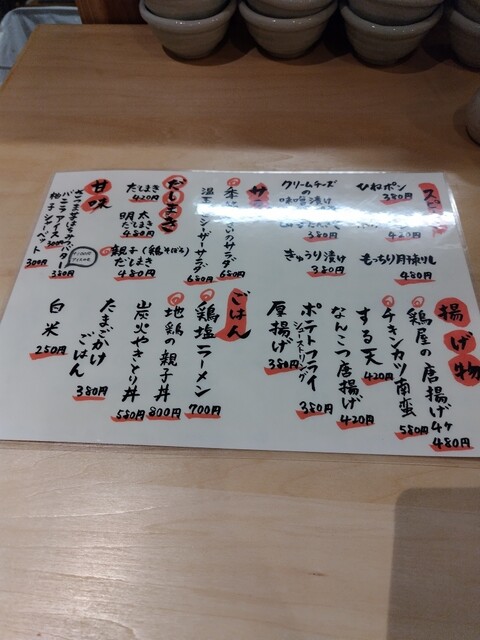 ひねポン
380円
420円
もっちり月揚りし
480円
クリームチーズ
の
味噌漬け
380円
きゅうり漬け
380円
サ
のサラダ
680円
温玉シーザーサラダ
680円
だしまき
だしまき
420円
明太
だしまき
480円
親子(鶏そぼろ)
だしまき
480円
甘味
さつま芋はちみつバター
380円
バニラアイス
300円
柚子シャーベット
300円
揚げ物
鶏屋の唐揚げ4ケ
480円
チキンカツ南蛮
580円
する天
420円
なんこつ唐揚げ
420円
ポテトフライ
シューストリング
380円
厚揚げ
380円
ごはん
鶏塩ラーメン
700円
地鶏の親子丼
800円
炭火やきとり丼
580円
たまごかけ
ごはん
380円
白米
250円